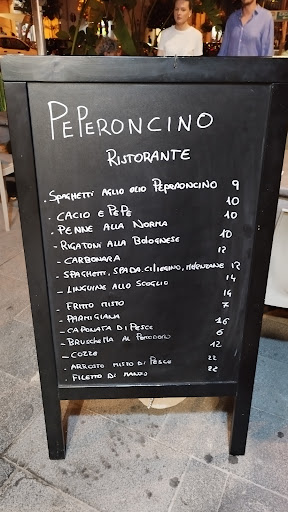 PEPERONCINO
RISTORANTE
SPAGHETTI AGLIO OLIO PEPERONCINO 9
- CACIO E PEPE 10
- PENNE ALLA NORMA 10
- RIGATONI ALLA BOLOGNESE 10
- CARBONARA 12
- SPAGHETTI, SPADA, CILIEGINO, MELENZANE 12
- LINGUINE ALLO SCOGLIO 14
- FRITTO MISTO 14
- PARMIGIANA 7
- CAPONATA DI PESCE 16
- BRUSCHETTA AL POMODORO 6
- COZZE 12
- ARROSTO MISTO DI PESCE 22
- FILETTO DI MANZO 22